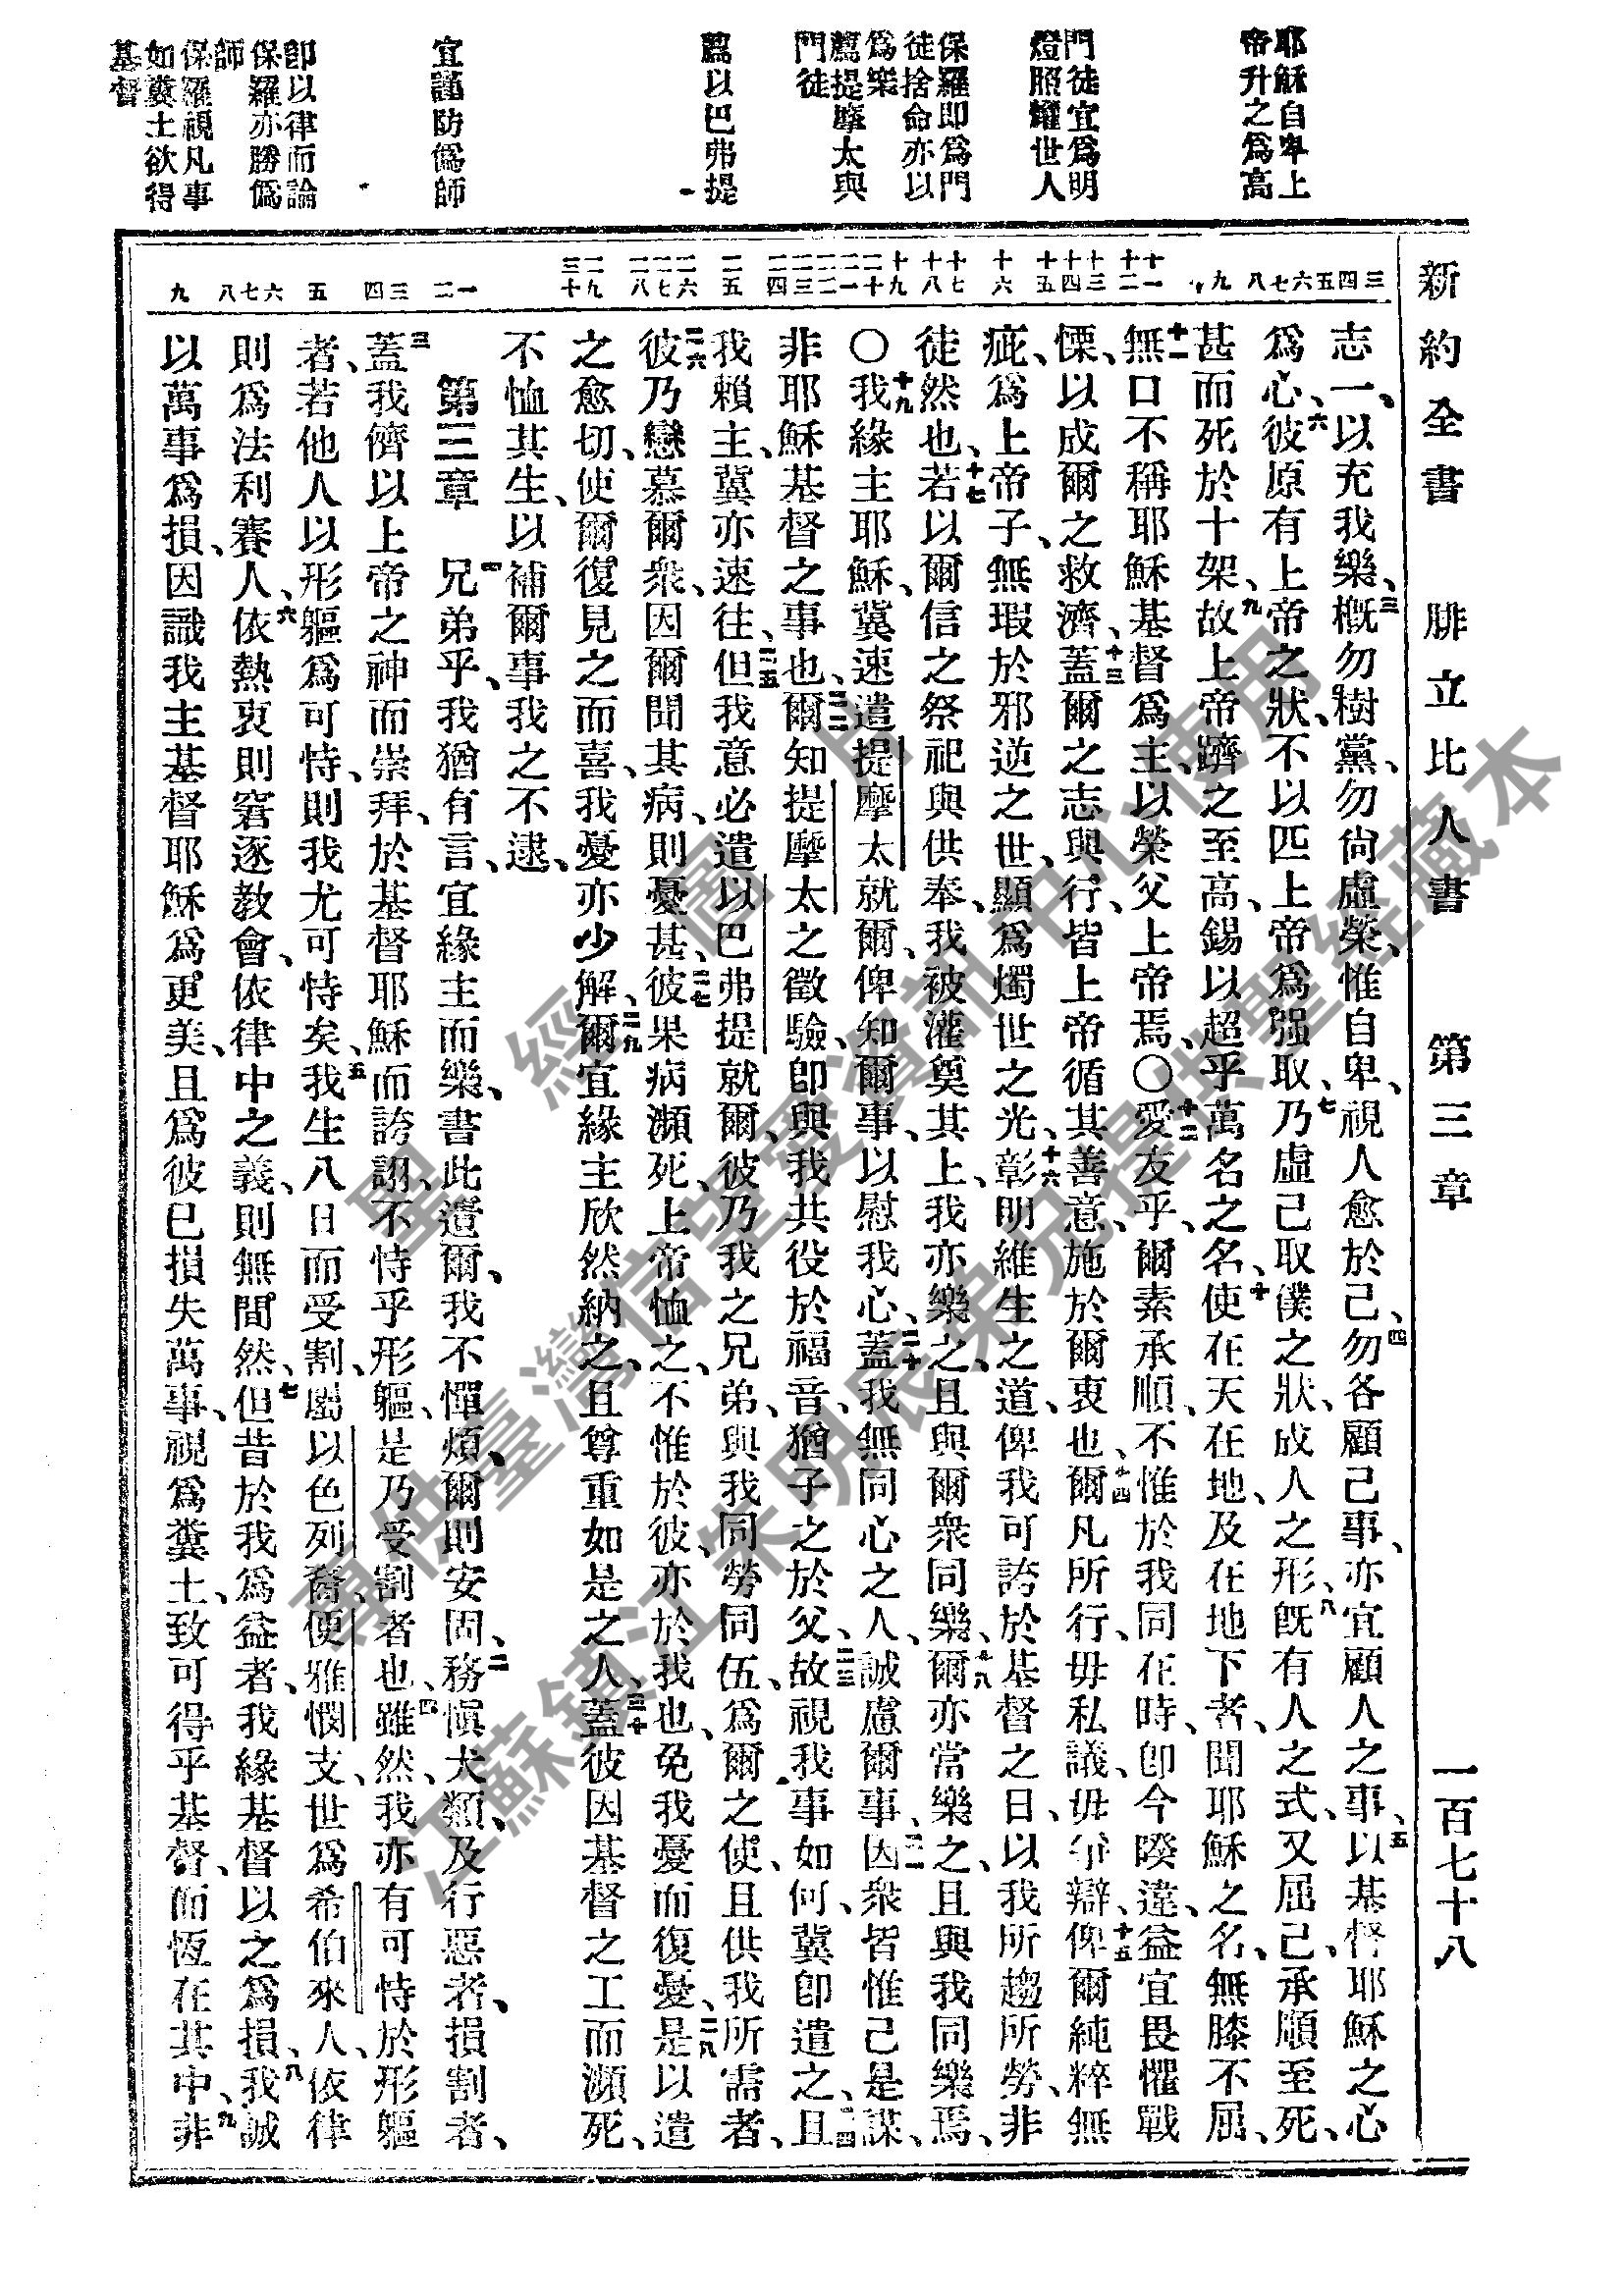 耶穌自卑上
帝升之爲高
門徒宜爲明
燈照耀世人
保羅卽爲門
徒捨命亦以
爲樂
薦提摩太與
門徒
薦以巴弗提
宜謹防僞師
卽以律而論
保羅亦勝僞
師
保羅視凡事
如糞土欲得
基督
新約全書 腓立比人書 第三章 一百七十八
三 四 五 六 七 八 九 十 十一 十二 十三 十四 十五 十六 十七 十八 十九 二十 二一 二二 二三 二四 二五 二六 二七 二八 二九 三十 一 二 三 四 五 六 七 八 九
志一、以充我樂、三概勿樹黨、勿尙虛榮、惟自卑、視人愈於己、四勿各顧己事、亦宜顧人之事、五以基督耶穌之心
爲心、六彼原有上帝之狀、不以匹上帝爲强取、七乃虛己取僕之狀、成人之形、八旣有人之式、又屈己、承順至死、
甚而死於十架、九故上帝躋之至高、錫以超乎萬名之名、十使在天在地、及在地下者、聞耶穌之名、無膝不屈、
十一無口不稱耶穌基督爲主、以榮父上帝焉、〇十二愛友乎、爾素承順、不惟於我同在時、卽今暌違、益宜畏懼戰
慄、以成爾之救濟、十三蓋爾之志與行、皆上帝循其善意、施於爾衷也、十四爾凡所行、毋私議、毋爭辯、十五俾爾純粹無
疵、爲上帝子、無瑕於邪逆之世、顯爲燭世之光、十六彰明維生之道、俾我可誇於基督之日、以我所趨所勞、非
徒然也、十七若以爾信之祭祀與供奉、我被灌奠其上、我亦樂之、且與爾衆同樂、十八爾亦當樂之、且與我同樂焉、
〇十九我緣主耶穌、冀速遣提摩太就爾、俾知爾事、以慰我心、二十蓋我無同心之人、誠慮爾事、二一因衆皆惟己是謀、
非耶穌基督之事也、二二爾知提摩太之徵驗、卽與我共役於福音、猶子之於父、二三故視我事如何、冀卽遣之、二四且
我賴主、冀亦速往、二五但我意必遣以巴弗提就爾、彼乃我之兄弟、與我同勞同伍、爲爾之使、且供我所需者、
二六彼乃戀慕爾衆、因爾聞其病、則憂甚、二七彼果病瀕死、上帝恤之、不惟於彼、亦於我也、免我憂而復憂、二八是以遣
之愈切、使爾復見之而喜、我憂亦少解、二九爾宜緣主欣然納之、且尊重如是之人、三十蓋彼因基督之工而瀕死、
不恤其生、以補爾事我之不逮、
第三章 一兄弟乎、我猶有言、宜緣主而樂、書此遺爾、我不憚煩、爾則安固、二務愼犬類、及行惡者、損割者、
三蓋我儕以上帝之神而崇拜、於基督耶穌而誇詡、不恃乎形軀、是乃受割者也、四雖然、我亦有可恃於形軀
者、若他人以形軀爲可恃、則我尤可恃矣、五我生八日而受割、屬以色列裔、便雅憫支、世爲希伯來人、依律
則爲法利賽人、六依熱衷則窘逐教會、依律中之義、則無間然、七但昔於我爲益者、我緣基督以之爲損、八我誠
以萬事爲損、因識我主基督耶穌爲更美、且爲彼已損失萬事、視爲糞土、致可得乎基督、而恆在其中、九非
聖經圖片
專供臺灣信望愛資訊中心使用
江蘇鎮江朱明辰弟兄提供聖經藏本